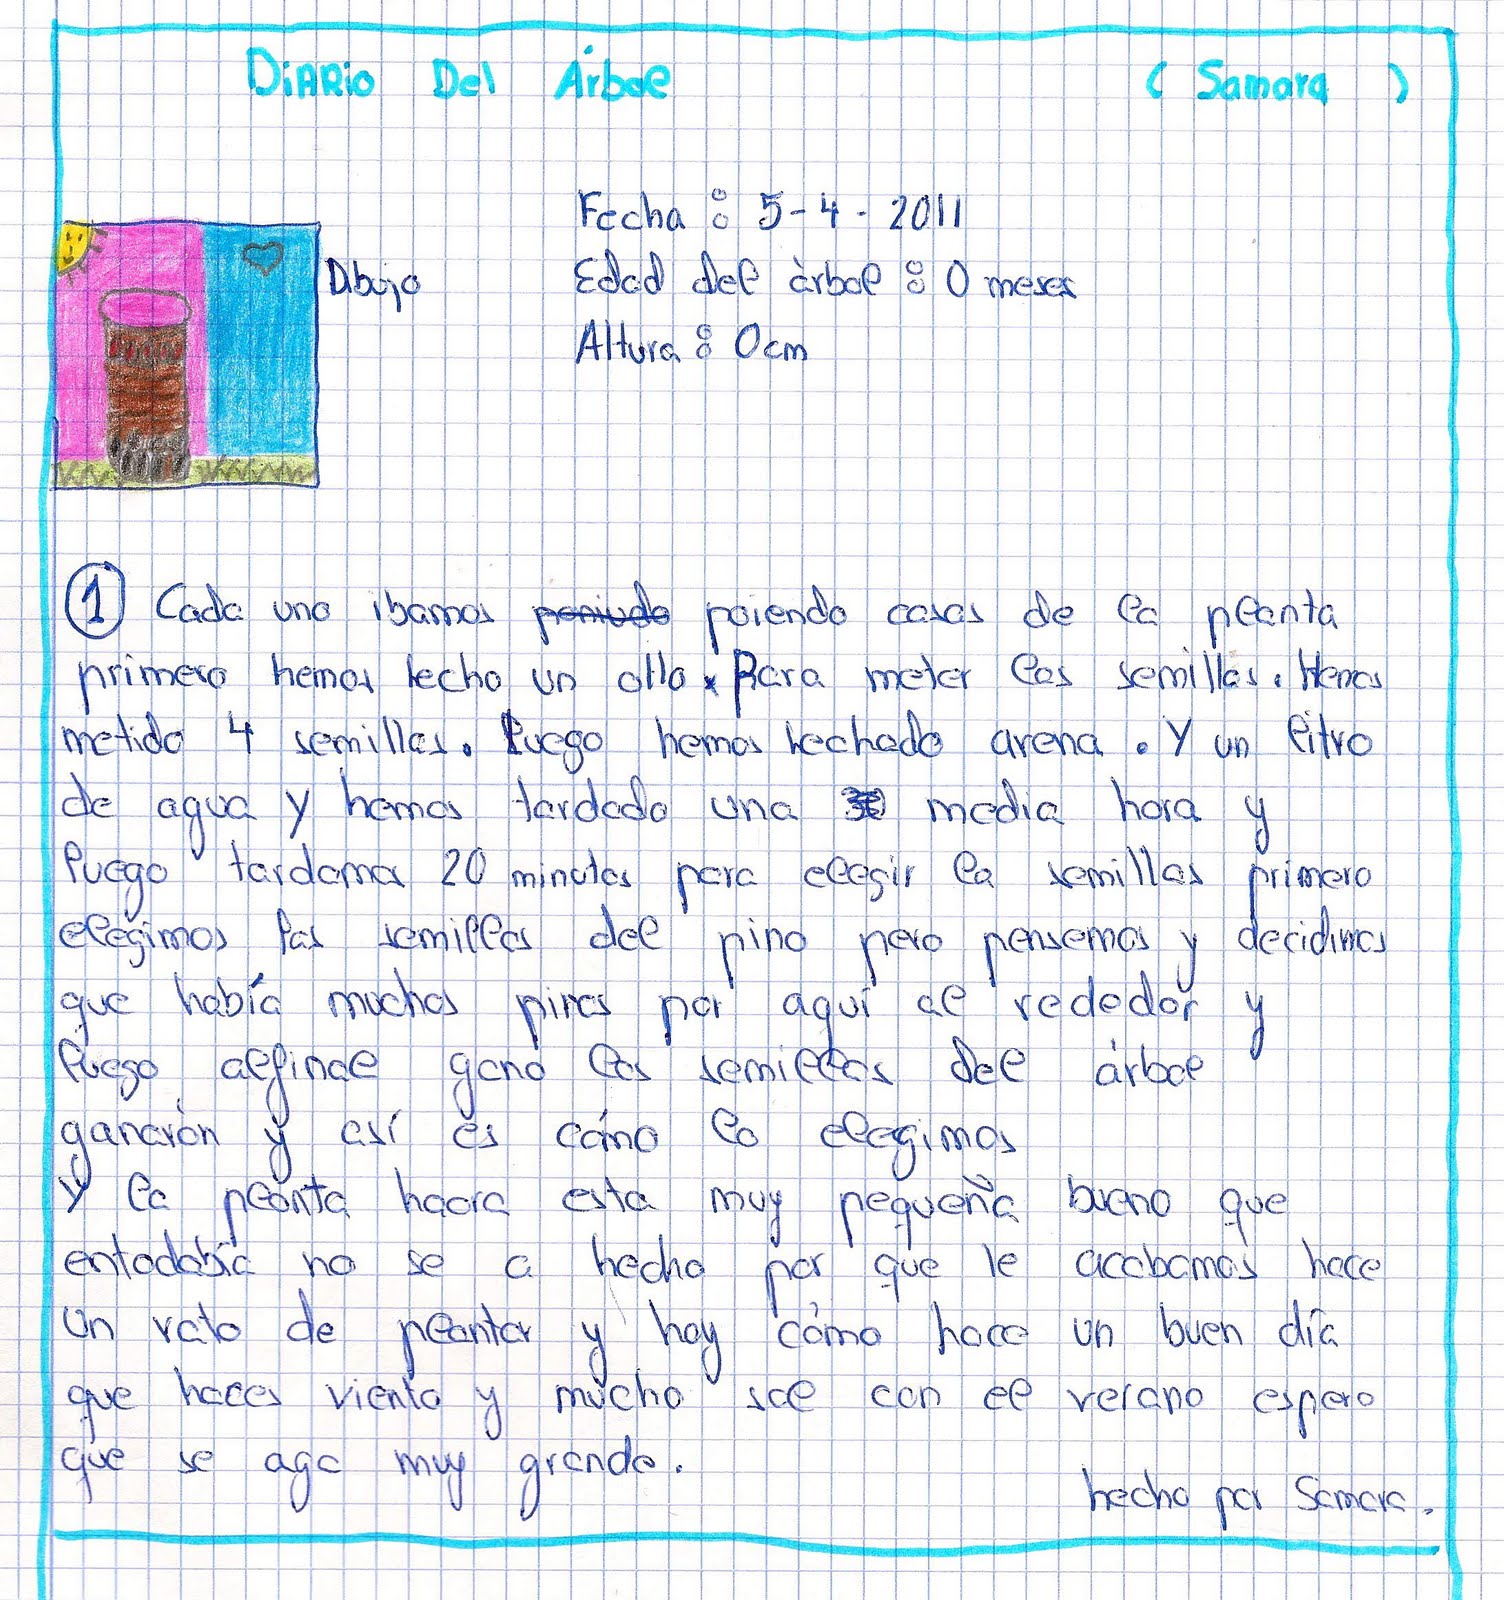 Diario Del Árbol (Samara)
Fecha: 5-4-2011
Dibujo
Edad del àrbol: 0 meses
Altura: 0cm
1 Cada uno ibamos poniudo poiendo casas de la planta
primero hemos hecho un ollo. Para meter las semillas. Hemos
metido 4 semillas. Luego hemos hechado arena. Y un litro
de agua y hemos tardado una media hora y
luego tardamos 20 minutos para elegir la semillas primero
elegimos las semillas del pino pero pensemos y decidimos
que había muchos pinos por aquí al rededor y
luego alfinal ganó las semillas del árbol
ganarón y así es cómo lo elegimos
Y la planta haora esta muy pequeña bueno que
entodabía no se a hecho por que le acabamos hace
un rato de plantar y hoy cómo hace un buen día
que haces viento y mucho sol con el verano espero
que se aga muy grande.
hecho por Samara.